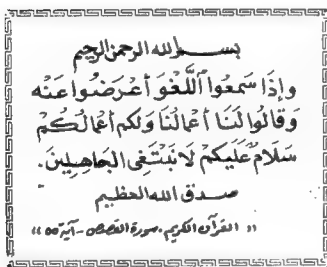 بسم الله الرحمن الرحيم
وإذا سَمِعُوا ٱللَّغْوَ أَعْرَضُوا عَنْهُ
وَقَالُوا لَنَا أَعْمَالُنَا وَلَكُمْ أَعْمَالُكُمْ
سَلَامٌ عَلَيْكُمْ لَا نَبْتَغِي الجَاهِلِينَ.
صدق الله العظيم
"القرآن الكريم. سورة القصص - آية ٥٥"